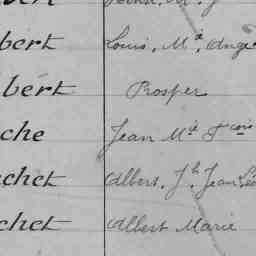 bert Louis, Mie, Ange
bert Prosper
che Jean Mie Fcois
chet Albert, Jh, Jean
chet Albert Marie